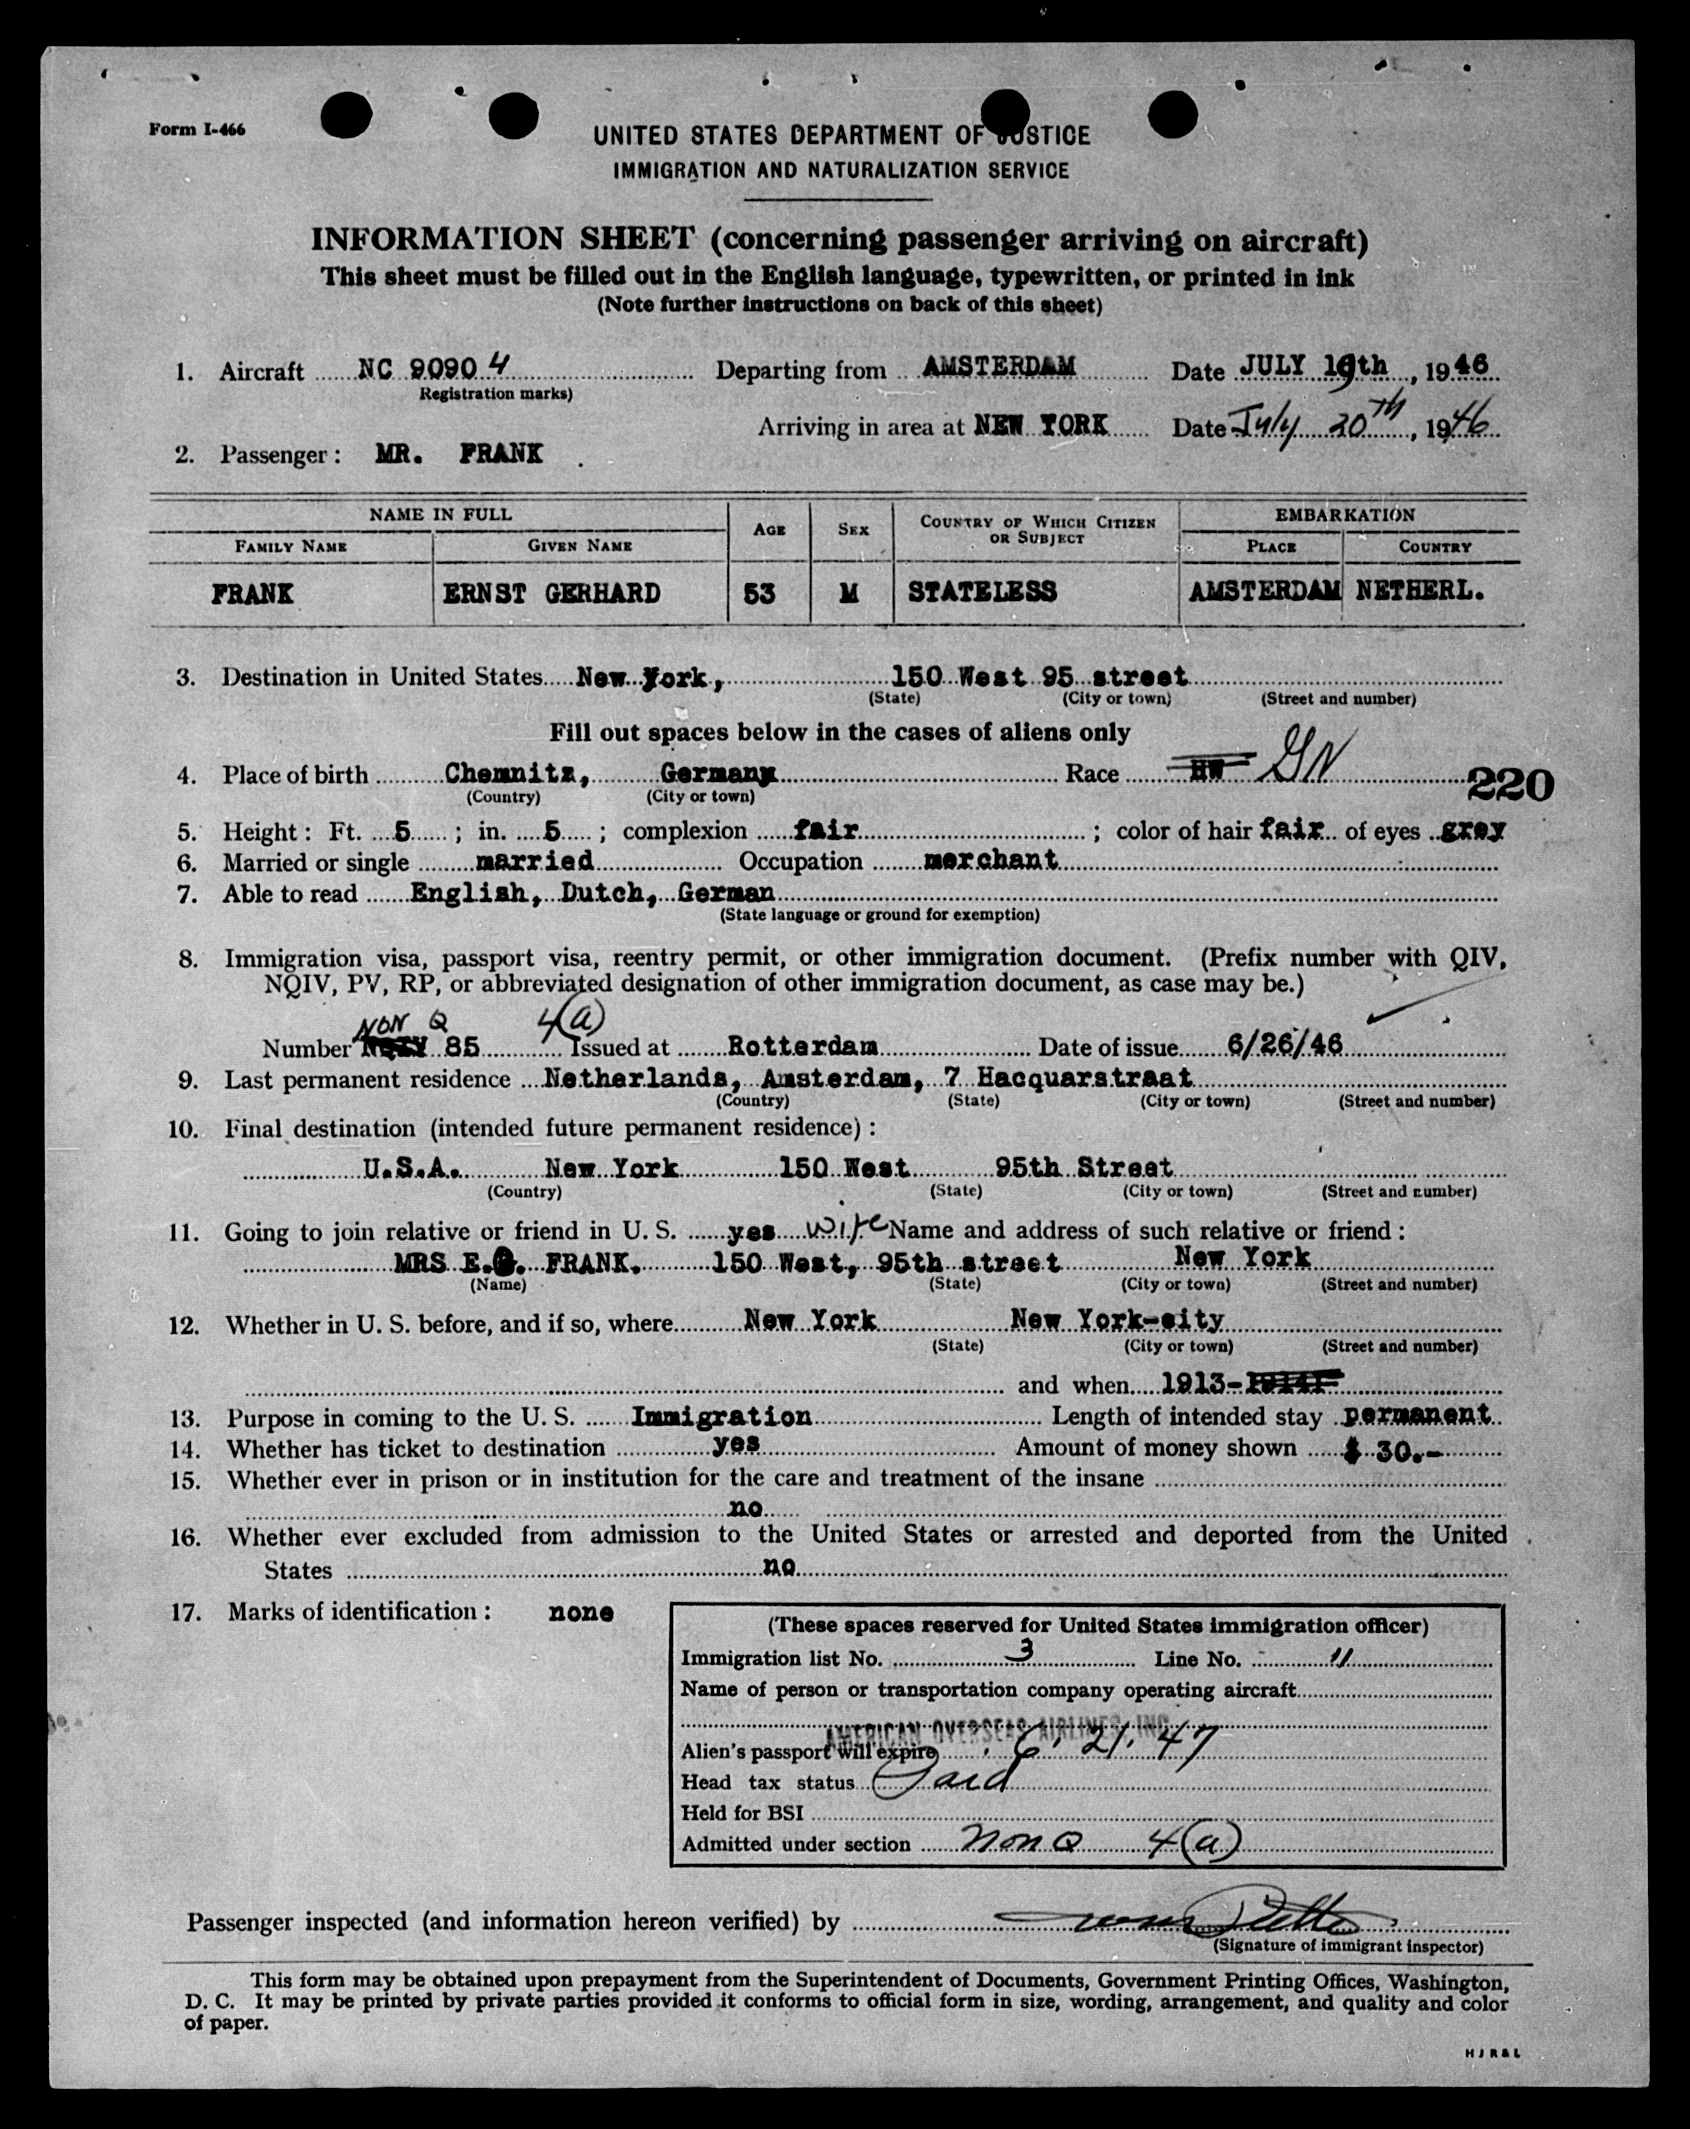 Form I-466
UNITED STATES DEPARTMENT OF JUSTICE
IMMIGRATION AND NATURALIZATION SERVICE
INFORMATION SHEET (concerning passenger arriving on aircraft)
This sheet must be filled out in the English language, typewritten, or printed in ink
(Note further instructions on back of this sheet)
1. Aircraft NC 90904 Departing from AMSTERDAM Date JULY 19th, 1946
(Registration marks)
Arriving in area at NEW YORK Date July 20TH, 1946
2. Passenger: MR. FRANK
NAME IN FULL AGE SEX COUNTRY OF WHICH CITIZEN OR SUBJECT EMBARKATION
FAMILY NAME GIVEN NAME PLACE COUNTRY
FRANK ERNST GERHARD 53 M STATELESS AMSTERDAM NETHERL.
3. Destination in United States New York, 150 West 95 street
(State) (City or town) (Street and number)
Fill out spaces below in the cases of aliens only
4. Place of birth Chemnitz, Germany Race HW GN
220
(Country) (City or town)
5. Height: Ft. 5; in. 5; complexion fair; color of hair fair of eyes grey
6. Married or single married Occupation merchant
7. Able to read English, Dutch, German
(State language or ground for exemption)
8. Immigration visa, passport visa, reentry permit, or other immigration document. (Prefix number with QIV,
NQIV, PV, RP, or abbreviated designation of other immigration document, as case may be.)
NON Q 4(a)
Number 85 Issued at Rotterdam Date of issue 6/26/46
9. Last permanent residence Netherlands, Amsterdam, 7 Hacquarstraat
(Country) (State) (City or town) (Street and number)
10. Final destination (intended future permanent residence):
U.S.A. New York 150 West 95th Street
(Country) (State) (City or town) (Street and number)
11. Going to join relative or friend in U. S. yes wife Name and address of such relative or friend:
MRS E.G. FRANK. 150 West, 95th street New York
(Name) (State) (City or town) (Street and number)
12. Whether in U. S. before, and if so, where New York New York-city
(State) (City or town) (Street and number)
and when 1913-
13. Purpose in coming to the U. S. Immigration Length of intended stay permanent
14. Whether has ticket to destination yes Amount of money shown $ 30.-
15. Whether ever in prison or in institution for the care and treatment of the insane
no
16. Whether ever excluded from admission to the United States or arrested and deported from the United
States no
17. Marks of identification: none
(These spaces reserved for United States immigration officer)
Immigration list No. 3 Line No. 11
Name of person or transportation company operating aircraft
AMERICAN OVERSEAS AIRLINES, INC.
Alien's passport will expire 6. 21. 47
Head tax status Paid
Held for BSI
Admitted under section Non Q 4(a)
Passenger inspected (and information hereon verified) by
(Signature of immigrant inspector)
This form may be obtained upon prepayment from the Superintendent of Documents, Government Printing Offices, Washington,
D. C. It may be printed by private parties provided it conforms to official form in size, wording, arrangement, and quality and color
of paper.
H J R & L